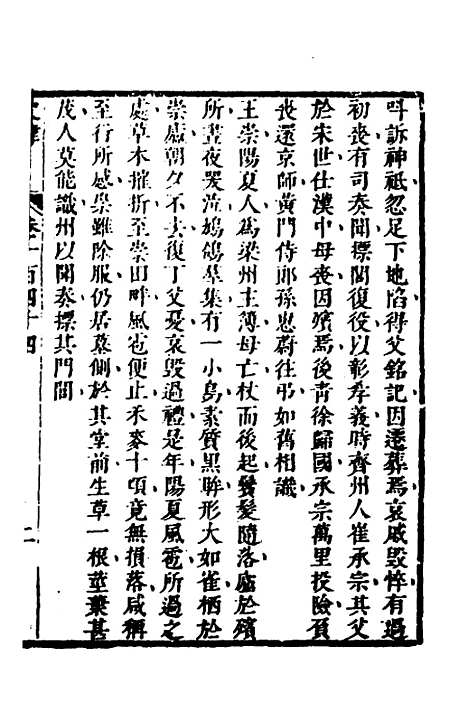 呌訴神祗忽足下地陷得父銘記因遷葬焉哀戚毀悴有過
初喪有司奏聞摽閭復役以彰孝義時齊州人崔承宗其父
於宋世仕漢中母喪因殯焉後青徐歸國承宗萬里投險負
喪還京師黃門侍郎孫惠蔚往弔如舊相識
王崇陽夏人爲梁州主簿母亡杖而後起鬢髮隨落廬於殯
所晝夜哭泣鳩鴿羣集有一小鳥素質黑眸形大如雀栖於
崇廬朝夕不去復丁父憂哀毀過禮是年陽夏風雹所過之
處草木摧折至崇田畔風雹便止禾麥十頃竟無損落咸稱
至行所感崇雖除服仍居墓側於其堂前生草一根莖葉甚
茂人莫能識州以聞奏摽其門閭
卷一百四十四
二